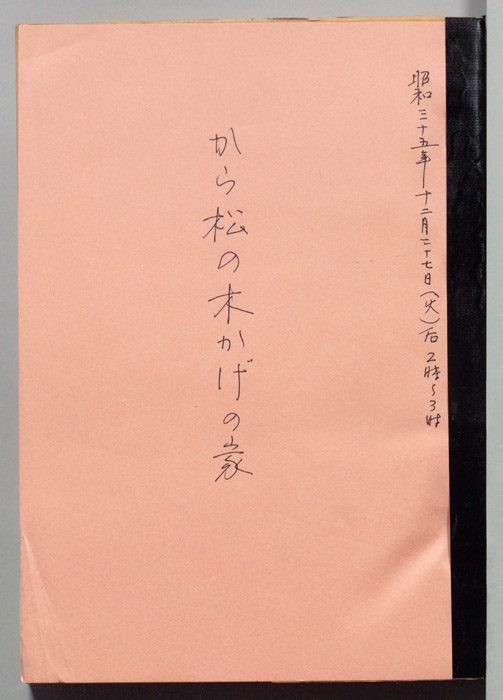 昭和三十五年十二月二十七日(火)后2時〜3時
から松の木かげの家